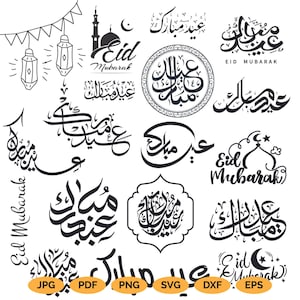 عيد مبارك
عيد مبارك
Eid
Mubarak
EID MUBARAK
عيد مبارك
عيد مبارك
عيد مبارك
عيد مبارك
عيد مبارك
عيد مبارك
Eid
Mubarak
Eid Mubarak
عيد مبارك
عيد مبارك
عيد مبارك
عيد مبارك
Eid
Mubarak
عيد مبارك
JPG PDF PNG SVG DXF EPS